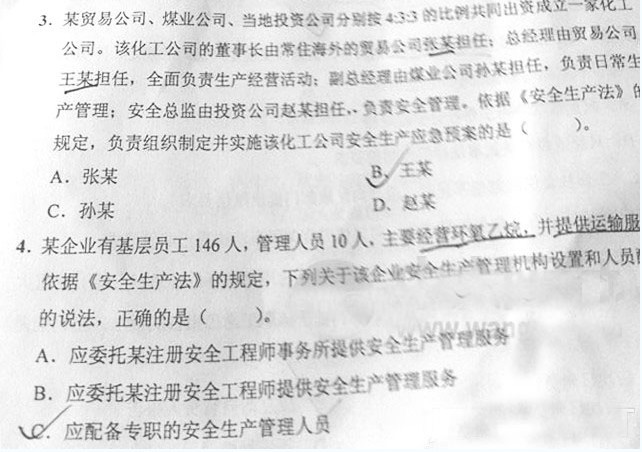 3. 某贸易公司、煤业公司、当地投资公司分别按 4:3:3 的比例共同出资成立一家化工
公司。该化工公司的董事长由常住海外的贸易公司张某担任；总经理由贸易公司
王某担任，全面负责生产经营活动；副总经理由煤业公司孙某担任，负责日常生
产管理；安全总监由投资公司赵某担任，负责安全管理。依据《安全生产法》的
规定，负责组织制定并实施该化工公司安全生产应急预案的是（ ）。
A．张某 B、王某
C．孙某 D．赵某
4. 某企业有基层员工 146 人，管理人员 10 人，主要经营环氧乙烷，并提供运输服
依据《安全生产法》的规定，下列关于该企业安全生产管理机构设置和人员配
的说法，正确的是（ ）。
www.wang
A．应委托某注册安全工程师事务所提供安全生产管理服务
B．应委托某注册安全工程师提供安全生产管理服务
C．应配备专职的安全生产管理人员